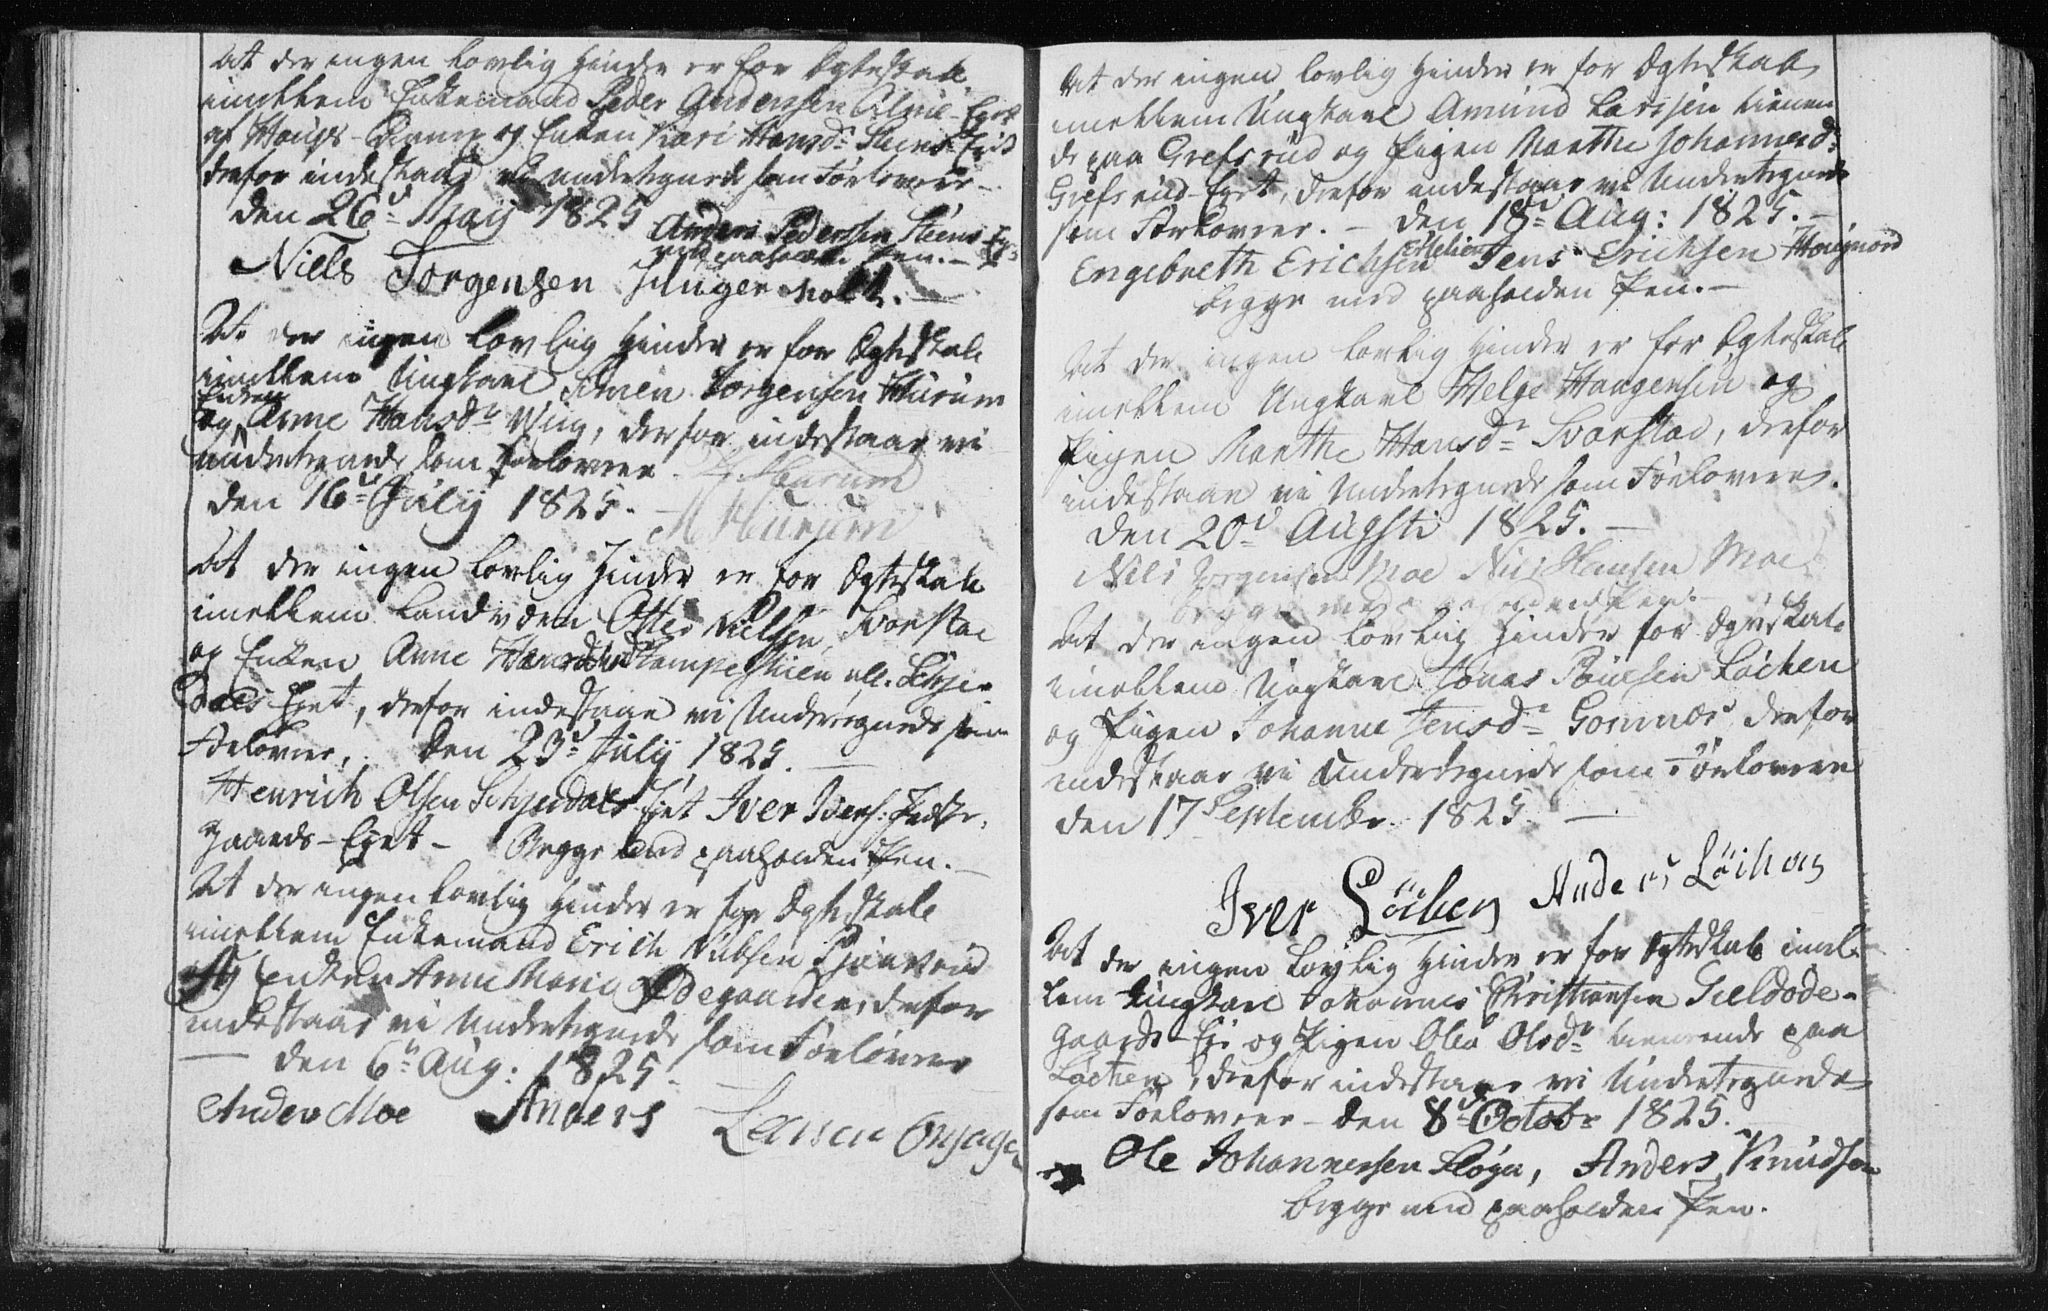 At der ingen lovlig Hinder er for Ægteskab
imellem Enkemand Peder Anderssen Alme-Eget
af Haugs- og Enken Kari Hansd: Steens Eget
derfor indestaaer vi undertegnede som Forlovere
den 26d May 1825 Anders Pedersen Steens Eg:
med paaholden Pen. –
Niels Torgensen
At der ingen lovlig Hinder er for Ægteskab
imellem Ungkarl Simen Torgensen Hurum
Enken
og Anne Hansdr Wiig, derfor indestaar vi
undertegnede som Forlovere
den 16d July 1825. – Hurum
At der ingen lovlig Hinder er for Ægteskab
imellem Landværn Otter Nielsen Svarstad
og Enken Anne Hansdr Stampeskien ell. Schjer-
dals Eget, derfor indestaar vi Undertegnede som
Forlovere, den 23d July 1825. –
Henrich Olsen Schjerdals Eget Iver Ivers:
gaards-Eget – Begge med paaholden Pen. –
At der ingen lovlig Hinder er for Ægteskab
imellem Enkemand Erich Nielsen
og Enken Anne Marie Ødegaarden, derfor
indestaar vi Undertegnede som Forlovere
– den 6te Aug: 1825. –
Anders Moe Anders Larsen
At der ingen lovlig Hinder er for Ægteskab
imellem Ungkarl Amund Larssen tienen
de paa Grefsrud og Pigen Marthe Johannesd:
Grefsrud-Eget, derfor indestaar vi Undertegnede
som Forlovere. – den 18d Aug: 1825. –
Engebreth Erichsen Jens Erichsen Haugnord
begge med paaholden Pen. –
At der ingen lovlig Hinder er for Ægteskab
imellem Ungkarl Helge Haagensen og
Pigen Marthe Hansdr Svarstad, derfor
indestaar vi Undertegnede som Forlovere.
den 20d Augsti 1825. –
Niels Jorgensen Moe Niels Hansen Moe
begge med paaholden Pen.
At der ingen lovlig Hinder for Ægteskab
imellem Ungkarl Jonas Poulsen Løchen
og Pigen Johanne Jensdr Gommæs derfor
indestaar vi Undertegnede som Forlovere
den 17 September 1825. –
Iver Löchen Anders Löchen
At der ingen lovlig Hinder er for Ægteskab imel-
lem Ungkarl Johannes Christiansen Gieldøde-
gaards-Eje og Pigen Olea Olsdr tienende paa
Løchen, derfor indestaar vi Undertegnede
som Forlovere – den 8d Octobr 1825. –
Ole Johannessen Fløya, Anders Knudsen
begge med paaholden Pen.